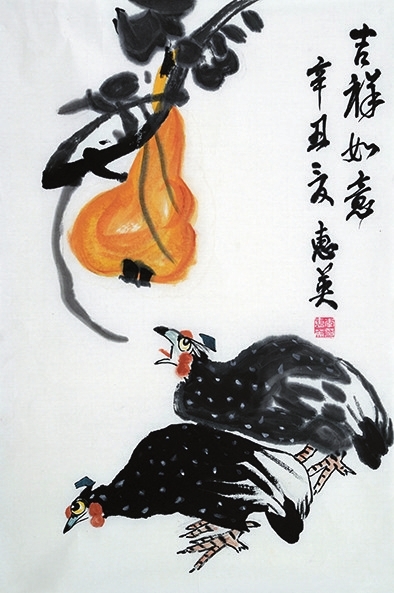 吉祥如意
辛丑夏 惠英